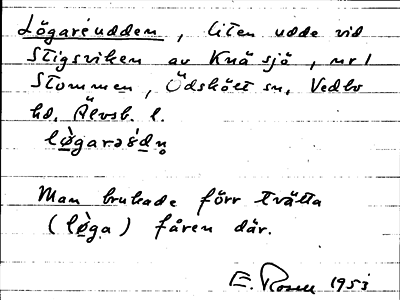 Lögareudden, liten udde vid
Stigsviken av Knäsjö, nr 1
Stommen, Ödskölt sn, Vedbo
hd. Älvsb. l.
Man brukade förr tvätta
(lø̀ga) fåren där.
E. Rosell 1953